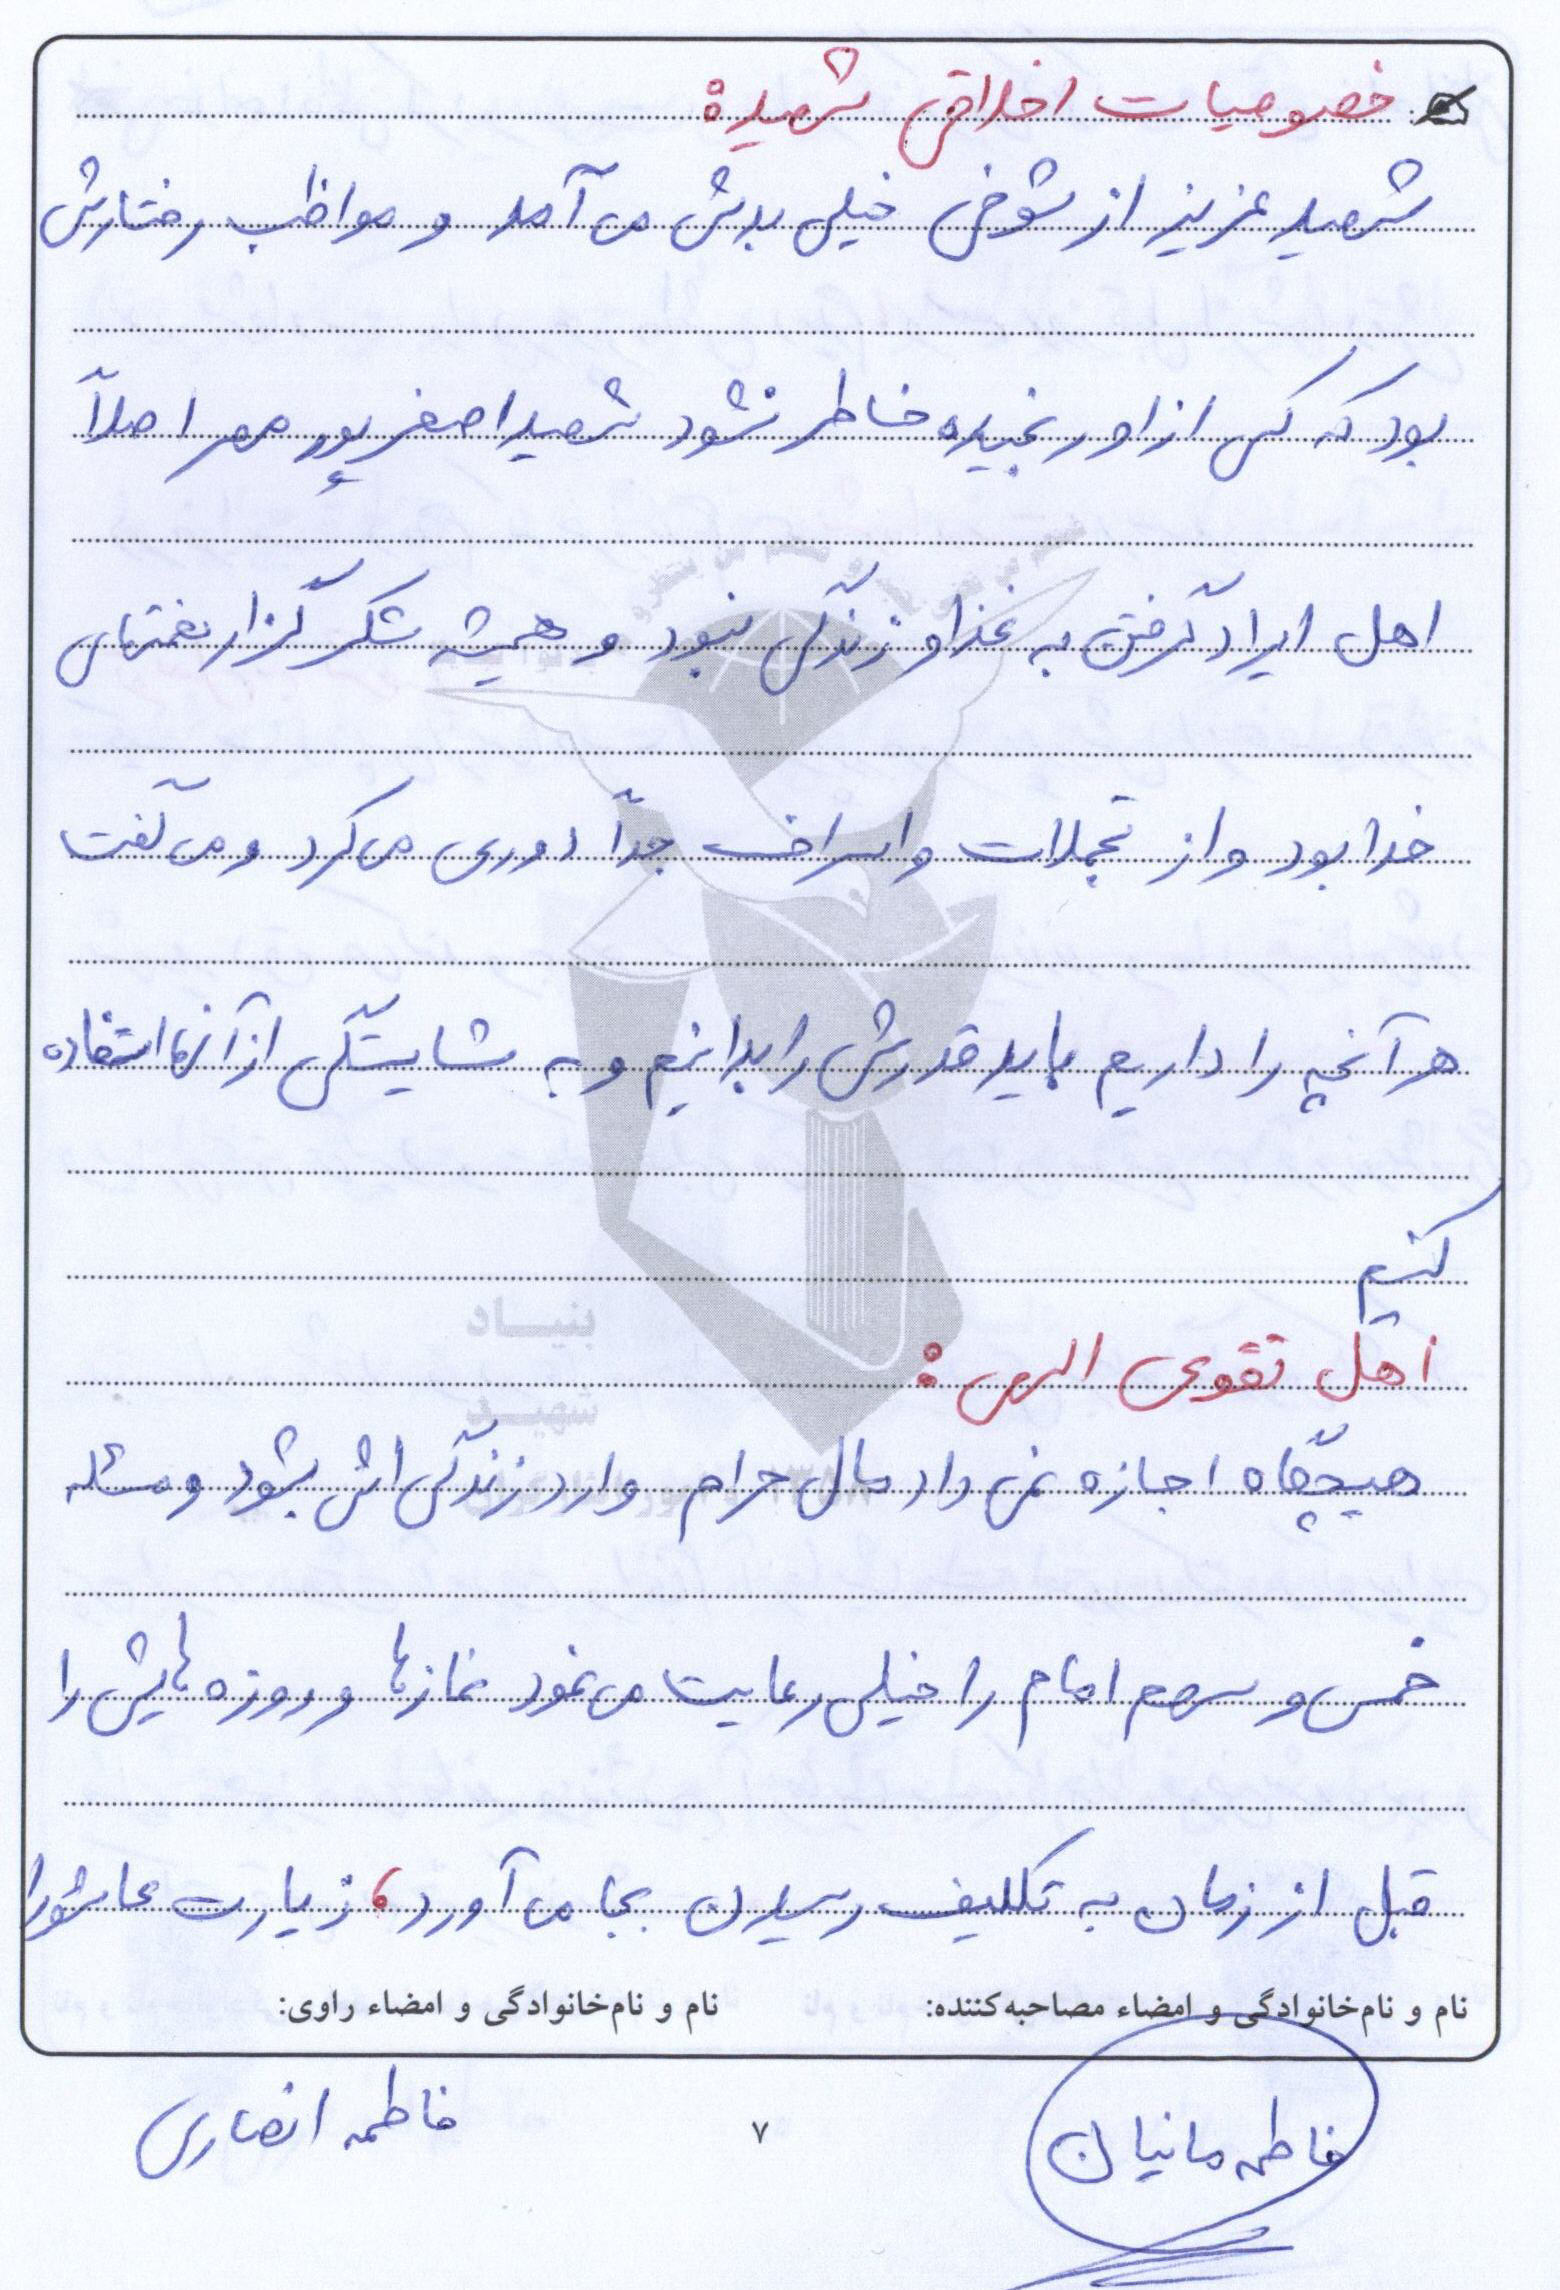 خصوصیات اخلاقی شهید:
شهید عزیز از شوخی خیلی بدش می آمد و مواظب رفتارش
بود که کسی از او رنجیده خاطر نشود شهید اصغرپور مهر اصلاً
اهل ایراد گرفتن به غذا و زندگی نبود و همیشه شکر گزار نعمتهای
خدا بود و از تجملات و اسراف جداً دوری می کرد و می گفت
هر آنچه را داریم باید قدرش را بدانیم و به شایستگی از آنها استفاده
کنیم
اهل تقوی الهی:
هیچگاه اجازه نمی داد مال حرام وارد زندگی اش بشود و مسئله
خمس و سهم امام را خیلی رعایت می نمود نمازها و روزه هایش را
قبل از زمان به تکلیف رسیدن بجا می آورد، زیارت عاشورا
نام و نام‌خانوادگی و امضاء مصاحبه‌کننده: نام و نام‌خانوادگی و امضاء راوی:
فاطمه مانیان فاطمه انصاری
۷
بنیاد
شهید